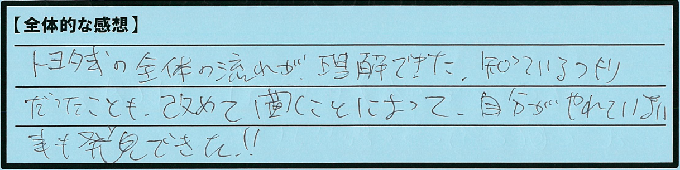 【全体的な感想】
トヨタ式の全体の流れが、理解できた。知っているつもり
だったことも、改めて聞くことによって、自分がやれていない
事も発見できた!!